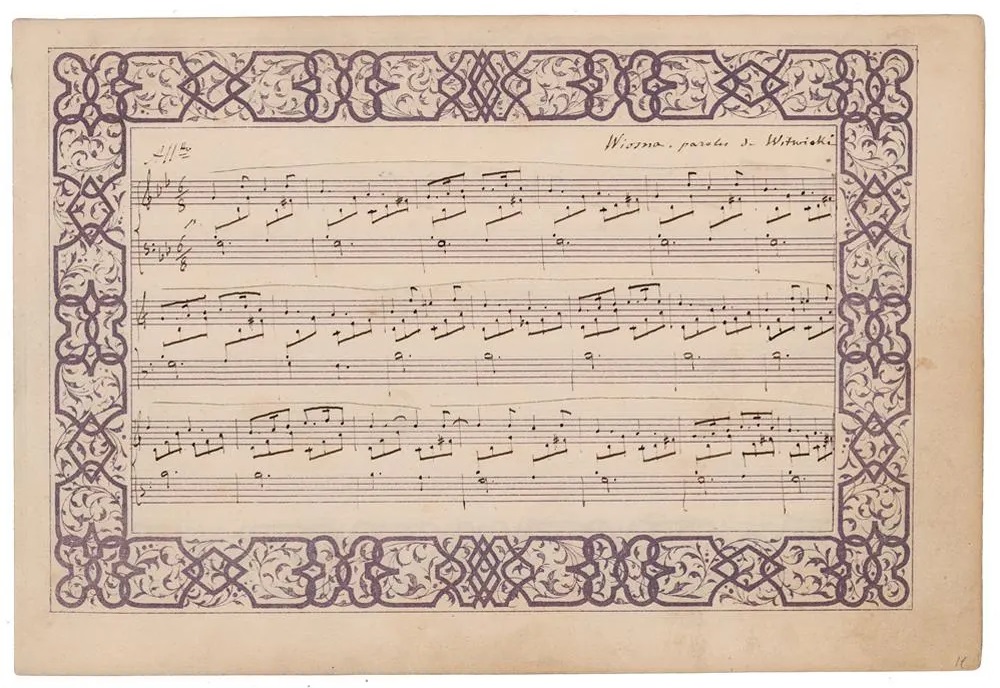 Wiosna. paroles de Witwicki
Alltto